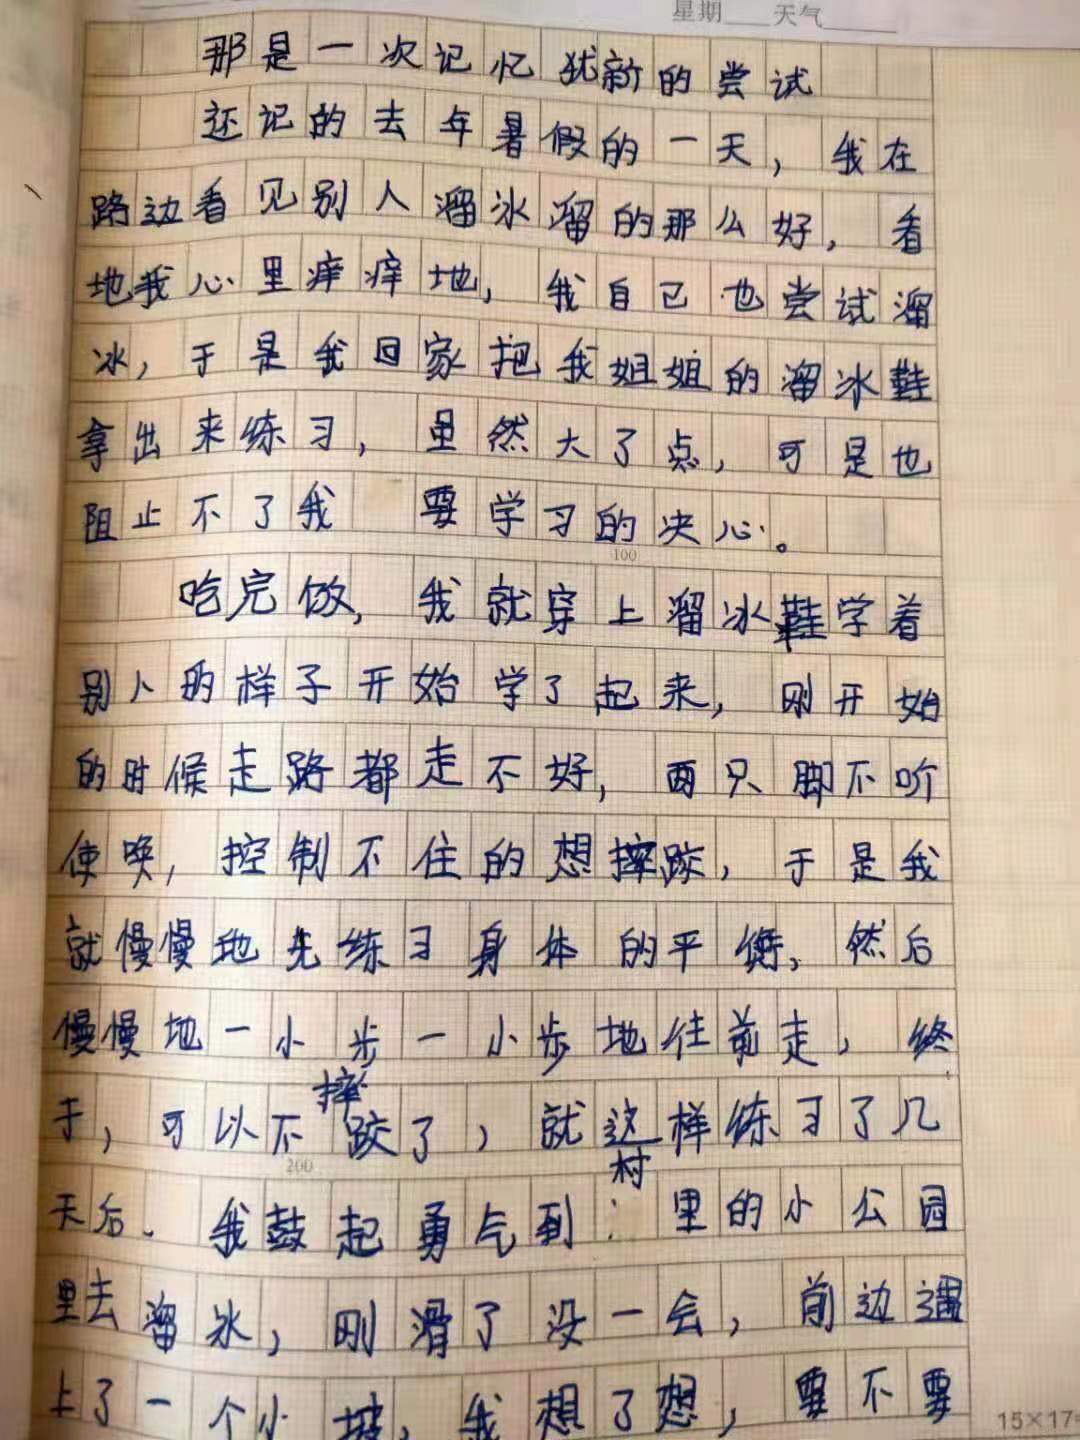 星期 天气
那是一次记忆犹新的尝试
还记的去年暑假的一天，我在
路边看见别人溜冰溜的那么好，看
地我心里痒痒地，我自己也尝试溜
冰，于是我回家把我姐姐的溜冰鞋
拿出来练习，虽然大了点，可是也
阻止不了我要学习的决心。
100
吃完饭，我就穿上溜冰鞋学着
别人的样子开始学了起来，刚开始
的时候走路都走不好，两只脚不听
使唤，控制不住的想摔跤，于是我
就慢慢地先练习身体的平衡，然后
慢慢地一小步一小步地往前走，终
于，可以不摔跤了，就这样练习了几
200
天后、我鼓起勇气到村里的小公园
里去溜冰，刚滑了没一会，前边遇
上了一个小坡，我想了想，要不要
15×17=